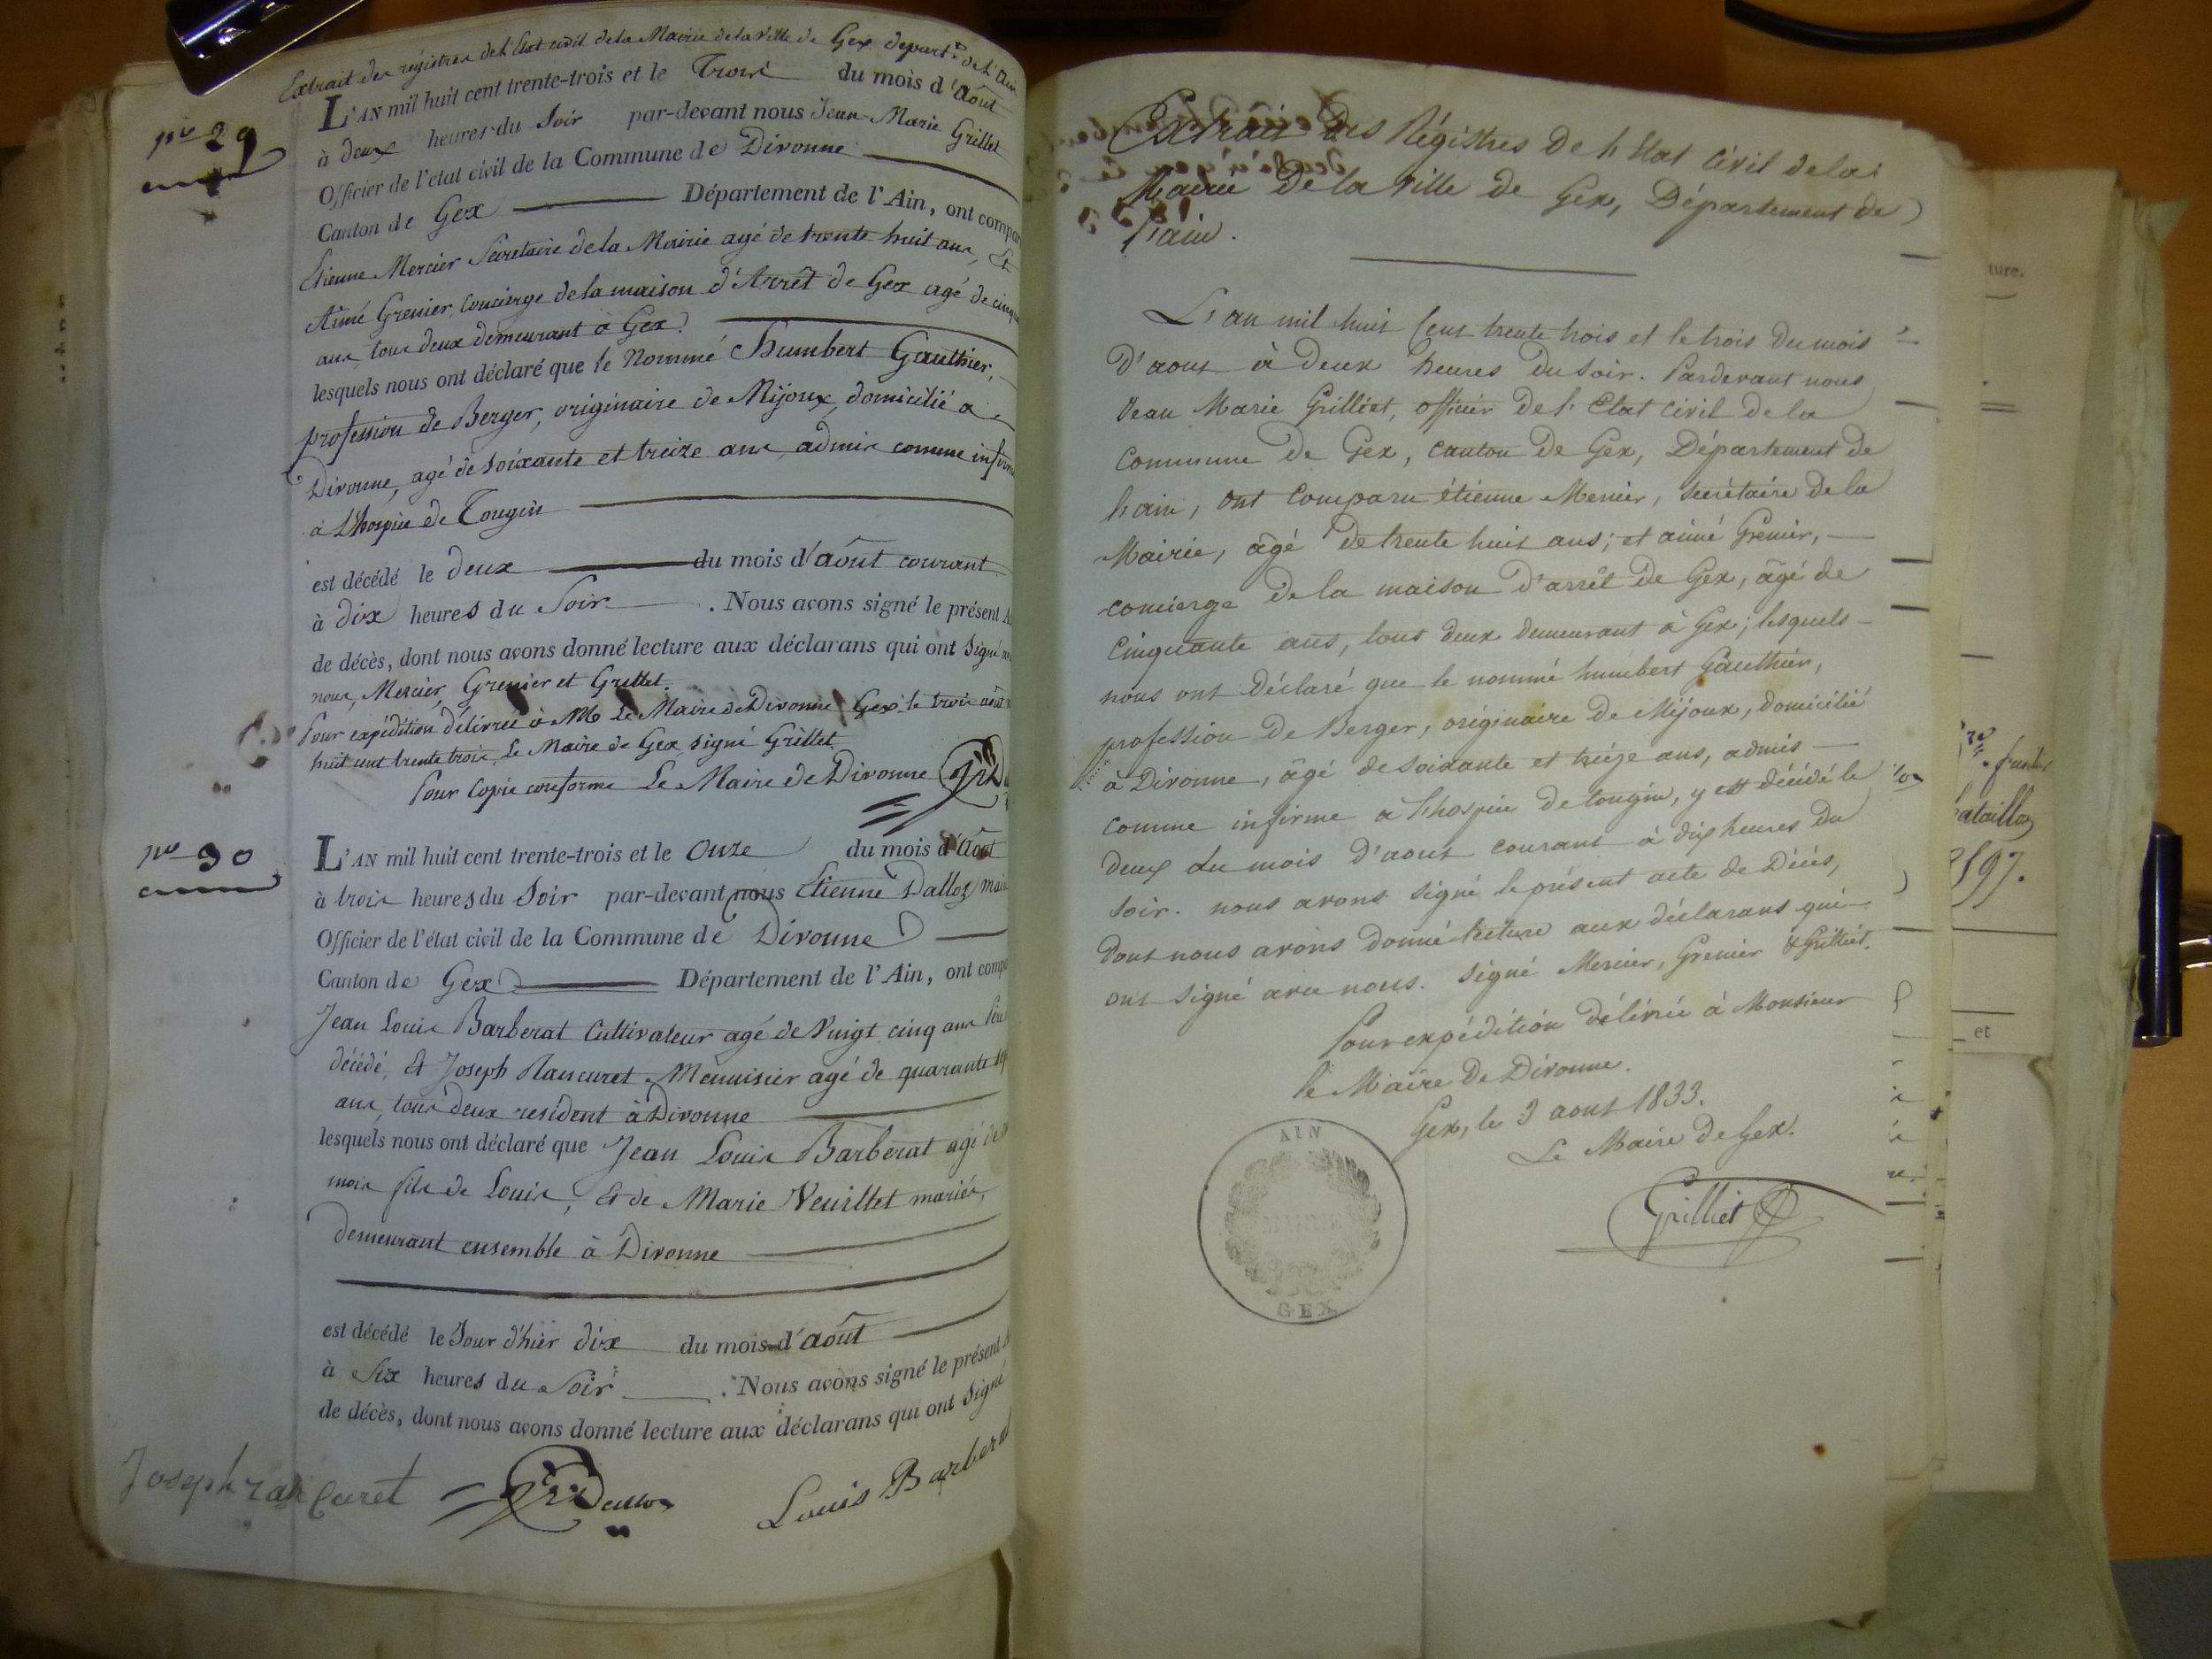 Extrait des registres de l'Etat civil de la Mairie de la Ville de Gex depart.t de l'Ain
n.o 29
L'AN mil huit cent trente-trois et le Trois du mois d'Août
à deux heures du Soir par-devant nous Jean-Marie Grillet
Officier de l'état civil de la Commune de Divonne
Canton de Gex Département de l'Ain, ont compar
Etienne Mercier Secretaire de la Mairie agé de trente huit ans, Et
Aimé Grenier, Concierge de la maison d'Arrêt de Gex agé de cinqu
ans, tous deux demeurant à Gex
lesquels nous ont déclaré que le Nommé Humbert Gauthier,
profession de Berger, originaire de Mijoux, domicilié a
Divonne, agé de soixante et treize ans, admis comme infirme
à L'hospice de Tougin
est décédé le deux du mois d'août courant
à dix heures du Soir. Nous avons signé le présent A
de décès, dont nous avons donné lecture aux déclarans qui ont Signé av
nous, Mercier, Grenier et Grillet.
Pour expédition délivrée à Mr Le Maire de Divonne Gex le trois août
huit cent trente trois, Le Maire de Gex, signé Grillet
Pour Copie conforme Le Maire de Divonne
n.o 30
L'AN mil huit cent trente-trois et le Onze du mois d'Août
à trois heures du Soir par-devant nous Etienne Dalloz, mair
Officier de l'état civil de la Commune de Divonne
Canton de Gex Département de l'Ain, ont compa
Jean Louis Barberat Cultivateur agé de Vingt cinq ans
décédé, Et Joseph Rancuret Menuisier agé de quarante
ans, tous deux resident à Divonne
lesquels nous ont déclaré que Jean Louis Barberat agé de
mois fils de Louis, Et de Marie Veuillet mariés,
demeurant ensemble à Divonne
est décédé le Jour d'hier dix du mois d'août
à Six heures du Soir. Nous avons signé le présent
de décès, dont nous avons donné lecture aux déclarans qui ont Signé
Joseph rancuret Dalloz Louis Barberat
Extrait des Régistres de l'Etat Civil de la
Mairie de la Ville de Gex, Département de
l'ain.
L'an mil huit Cent trente trois et le trois du mois
d'aout à deux heures du soir. Pardevant nous
Jean Marie Grilliet, officier de l'Etat Civil de la
Commune de Gex, canton de Gex, Département de
l'ain, ont Comparu étienne Mercier, secrétaire de la
Mairie, âgé de trente huit ans; et aimé Grenier,
concierge de la maison d'arrêt de Gex, âgé de
Cinquante ans, tous deux demeurant à Gex; lesquels
nous ont déclaré que le nommé humbert Gauthier,
profession de Berger, originaire de Mijoux, domicilié
à Divonne, âgé de soixante et treize ans, admis
comme infirme à l'hospice de tougin, y est décédé le
deux du mois d'aout courant à dix heures du
soir. nous avons signé le présent acte de Décès,
dont nous avons donné lecture aux déclarans qui
ont signé avec nous. Signé Mercier, Grenier & Grilliet.
Pour expédition délivrée à Monsieur
le Maire de Divonne.
Gex, le 3 aout 1833.
Le Maire de Gex.
Grilliet
AIN
MAIRIE
GEX
ture.
et